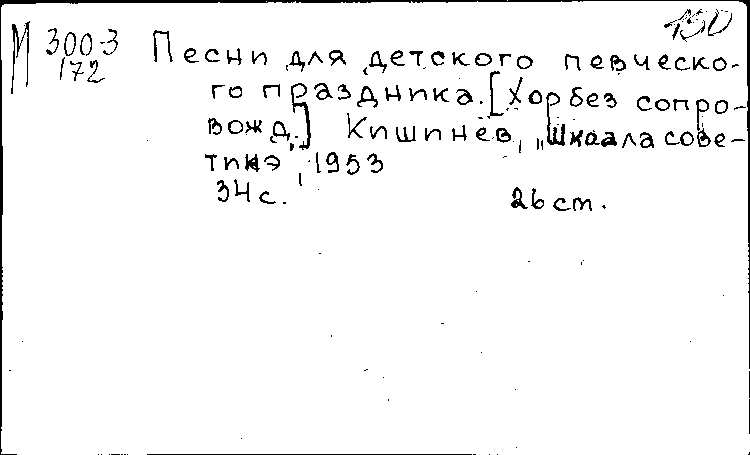 150
М 300-3 Песни для детского певческо-
172 го праздника. [Хор без сопро-
вожд.] Кишинев, „Шкоала сове-
тикэ", 1953
34 с. 26 cm.